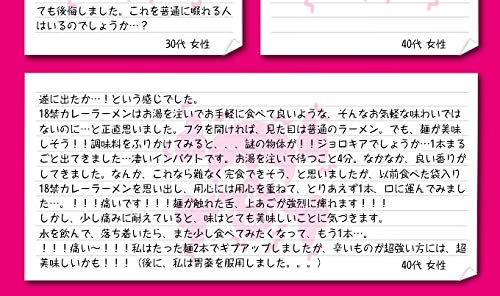 ても後悔しました。これを普通に啜れる人
はいるのでしょうか…？
30代 女性
40代 女性
遂に出たか…！という感じでした。
18禁カレーラーメンはお湯を注いでお手軽に食べて良いような、そんなお気軽な味わいでは
ないのに…と正直思いました。フタを開ければ、見た目は普通のラーメン。でも、麺が美味
しそう！！調味料をふりかけてみると、、、謎の物体が！！ジョロキアでしょうか…1本まる
ごと出てきました…凄いインパクトです。お湯を注いで待つこと4分。なかなか、良い香りが
してきました。なんか、これなら難なく完食できそう、と思いましたが、以前食べた袋入り
18禁カレーラーメンを思い出し、用心には用心を重ねて、とりあえず1本、口に運んでみまし
た…。！！！痛いです！！！麺が触れた舌、上あごが強烈に痺れます！！！
しかし、少し痛みに耐えていると、味はとても美味しいことに気づきます。
水を飲んで、落ち着いたら、また少し食べてみたくなって、もう1本…。
！！！痛い～！！！私はたった麺2本でギブアップしましたが、辛いものが超強い方には、超
美味しいかも！！！（後に、私は胃薬を服用しました。。。）
40代 女性